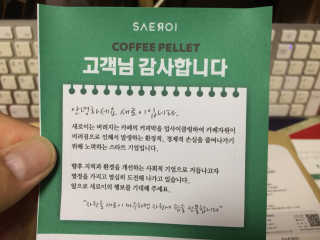 SAEROI
COFFEE PELLET
고객님 감사합니다
안녕하세요 새로이입니다.
새로이는 버려지는 카페의 커피박을 업사이클링하여 카페자원이
버려짐으로 인해서 발생하는 환경적, 경제적 손실을 줄여나가기
위해 노력하는 스타트 기업입니다.
향후 지역과 환경을 개선하는 사회적 기업으로 거듭나고자
열정을 가지고 열심히 도전해 나가고 있습니다.
앞으로 새로이의 행보를 기대해 주세요.